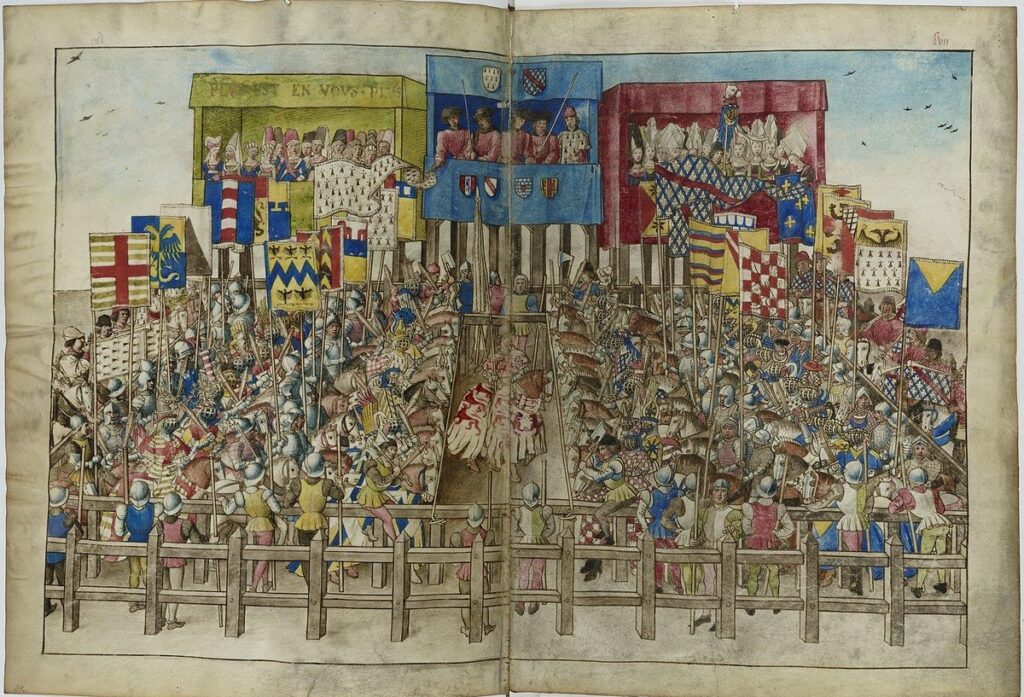 PLUS EST EN VOUS · PL